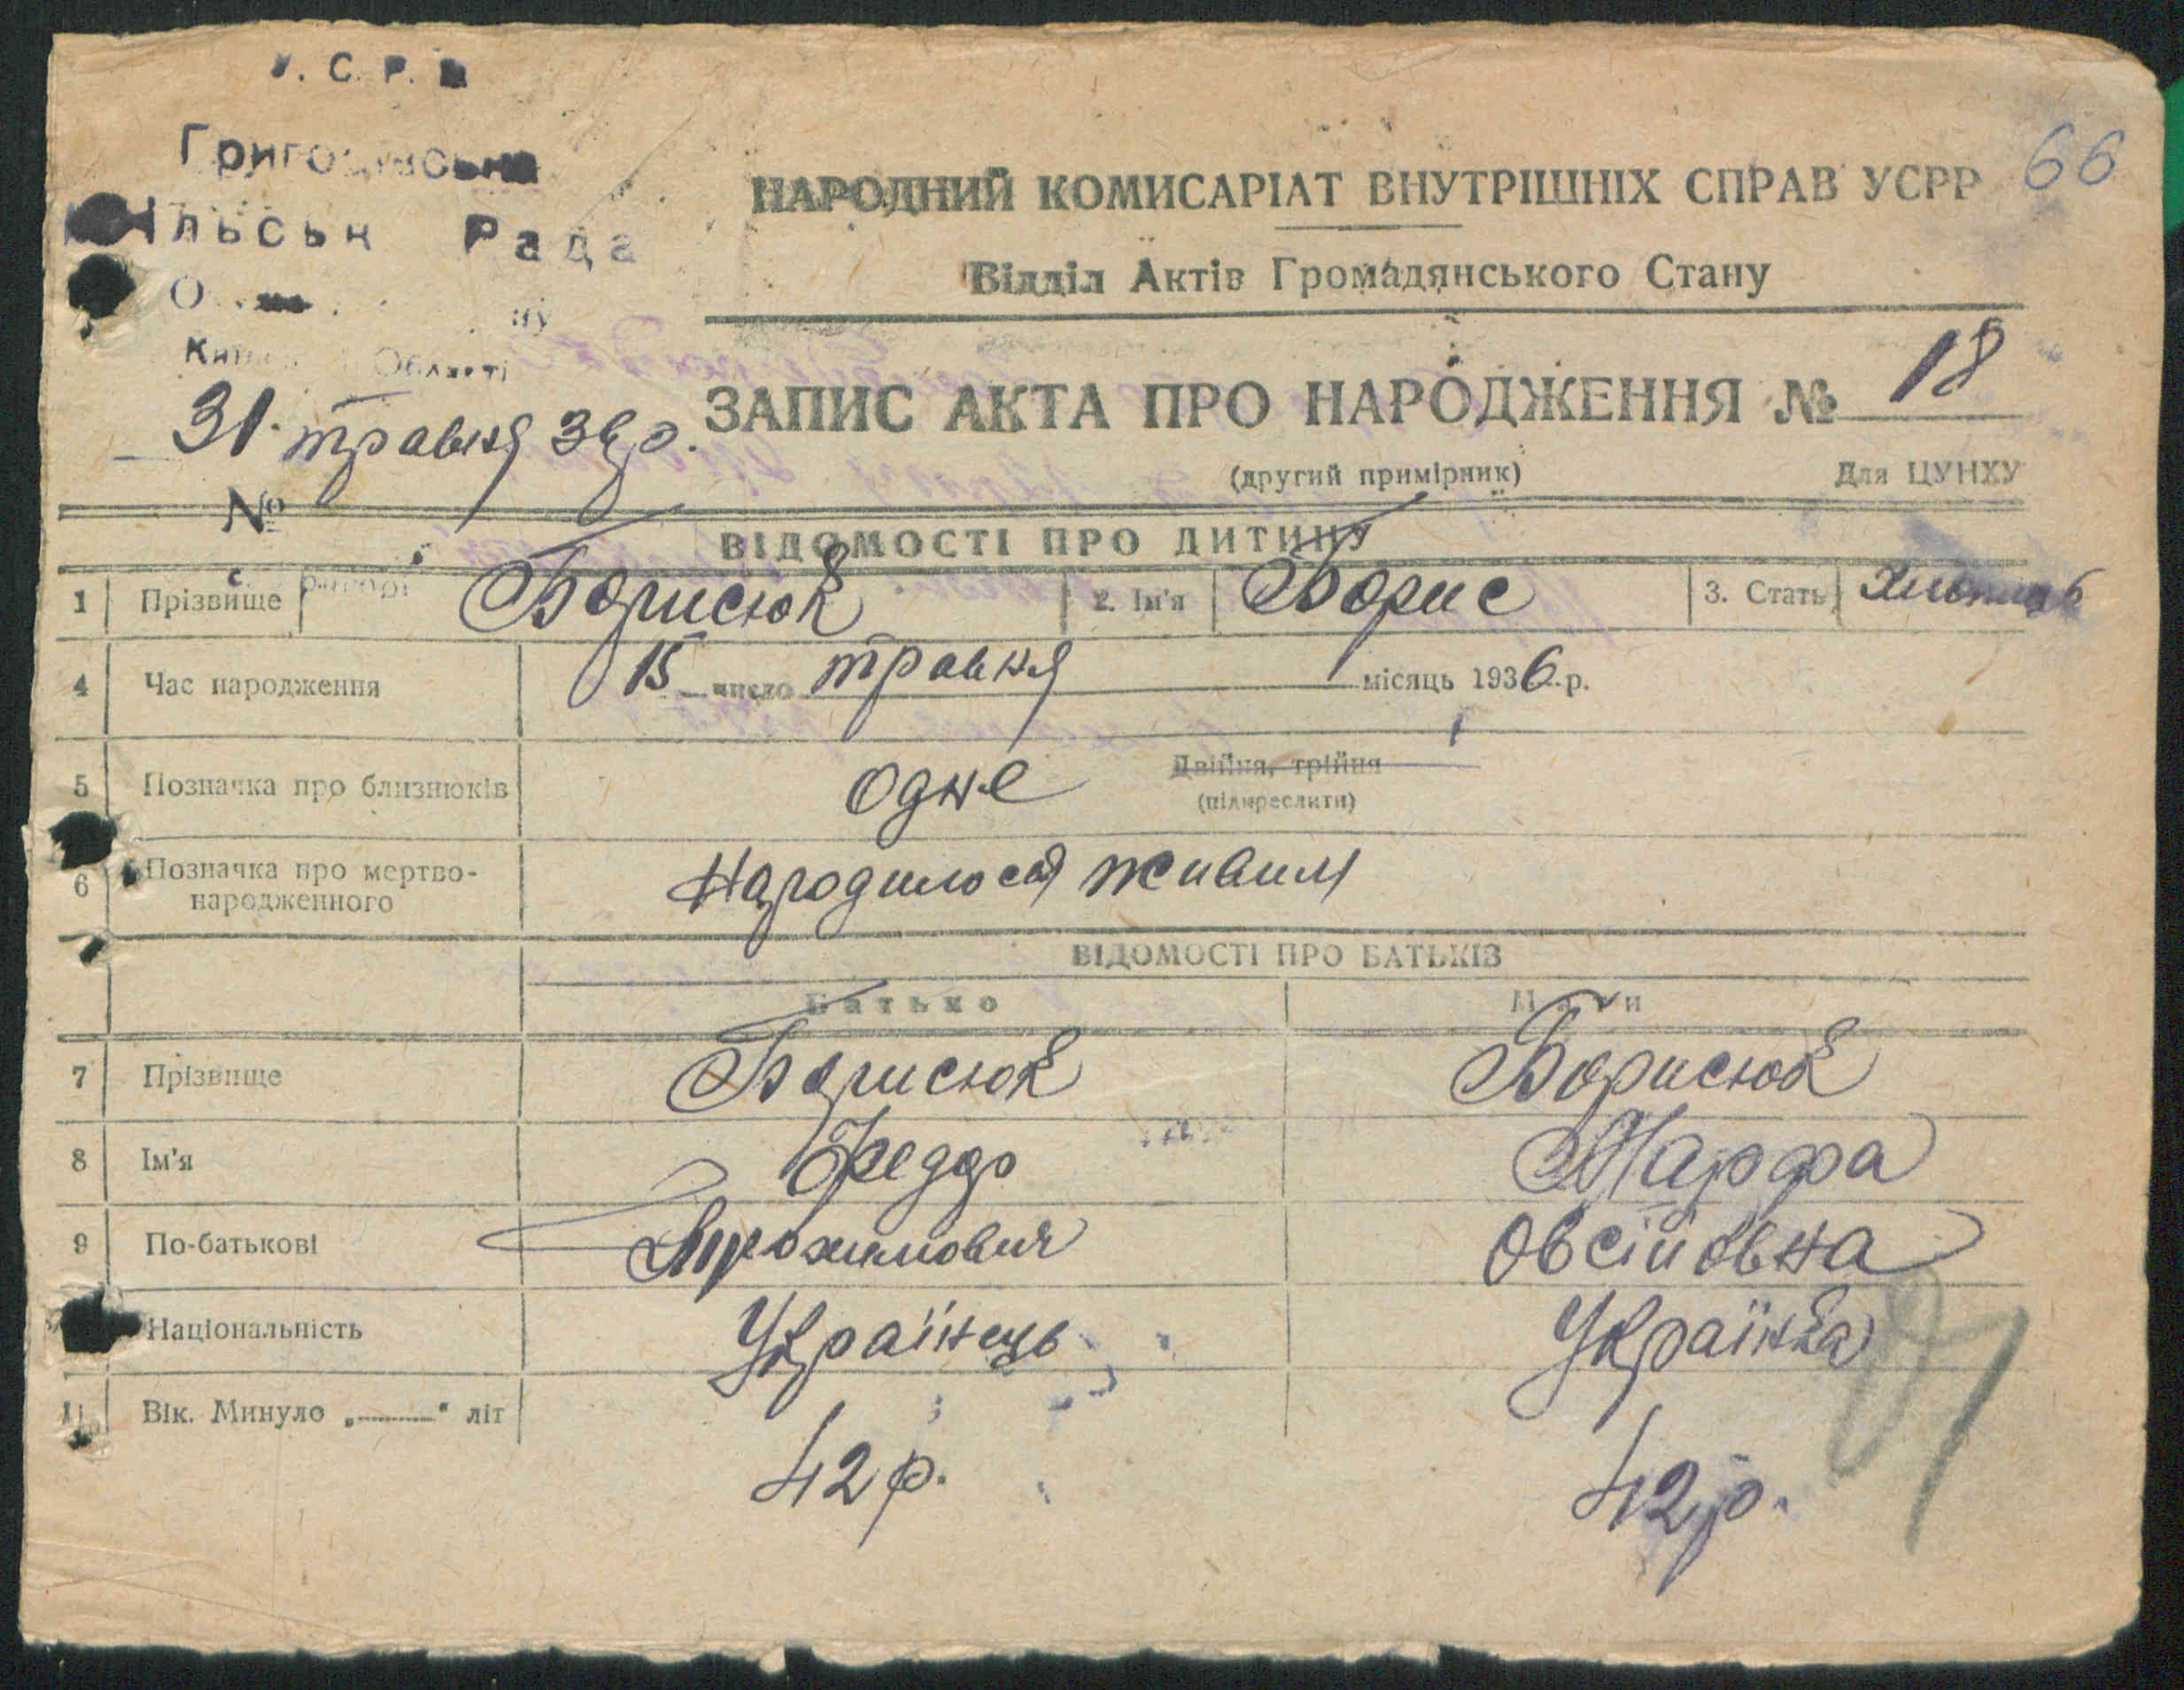 У. С. Р. Р.
66
НАРОДНИЙ КОМИСАРІАТ ВНУТРІШНІХ СПРАВ УСРР
Рада
Відділ Актів Громадянського Стану
Області
31 травня 36 р.
ЗАПИС АКТА ПРО НАРОДЖЕННЯ № 18
(другий примірник) Для ЦУНХУ
№
ВІДОМОСТІ ПРО ДИТИНУ
1 Прізвище Борисюк 2. Ім'я Борис 3. Стать Хлопець
4 Час народження 15 число травня місяць 1936 р.
5 Позначка про близнюків одне Двійня, трійня
(підкреслити)
6 Позначка про мертво-
народженного Народилося живим
ВІДОМОСТІ ПРО БАТЬКІВ
Батько Мати
7 Прізвище Борисюк Борисюк
8 Ім'я Федор Марфа
9 По-батькові Трохимович Овсійовна
Національність Українець Українка
11 Вік. Минуло „ “ літ
42 р. 42 р.